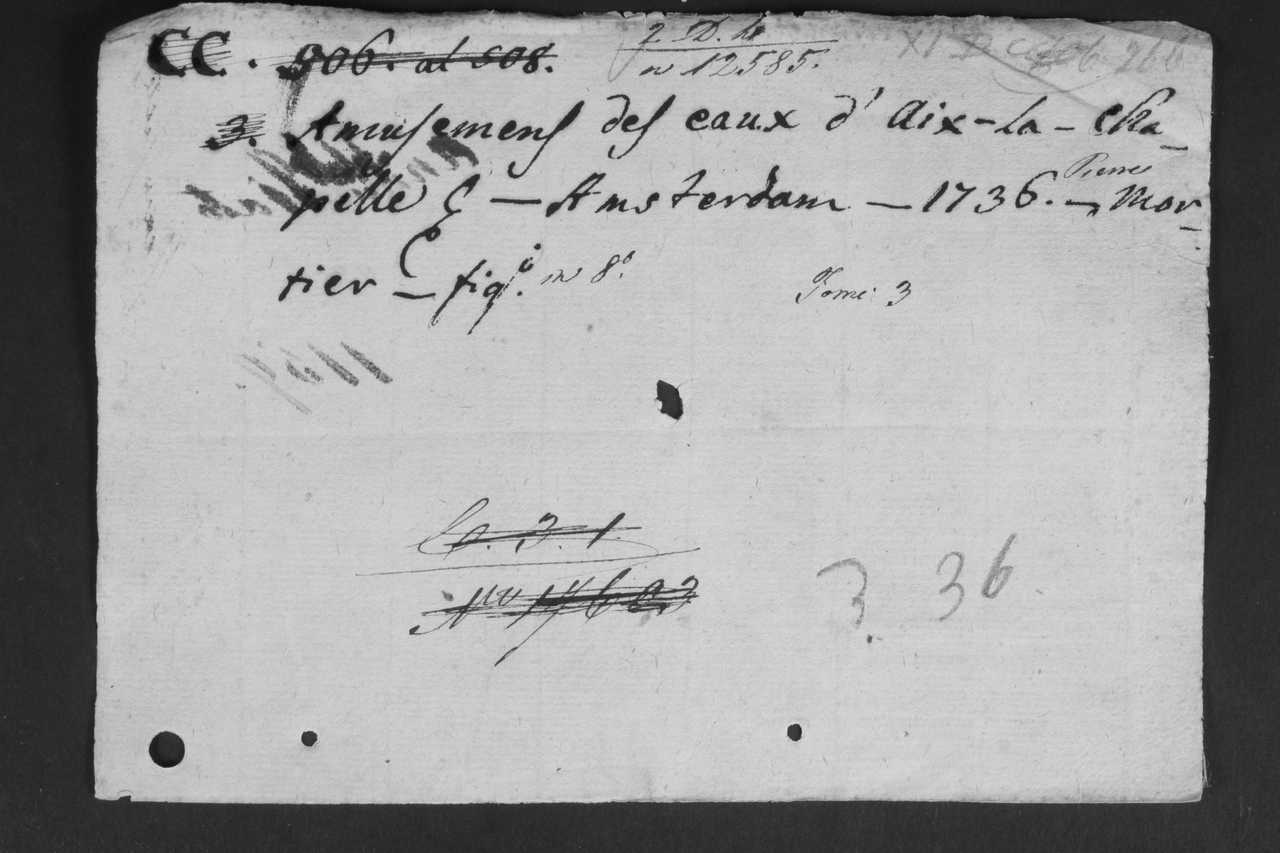 CC. 906. al 908.
2. D. 4
n 12585.
3. Amusemens des eaux d' Aix-la-Cha-
pelle & — Amsterdam — 1736. — Pierre Mor-
tier — fig. in 8°. Tome 3
3. 36